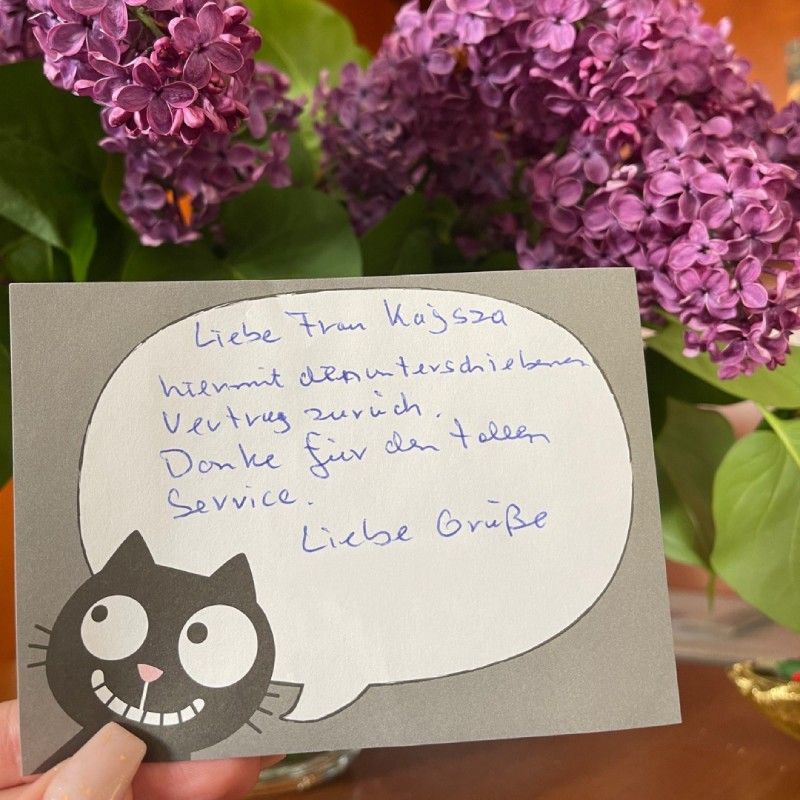 Liebe Frau Kajsza
hiermit den unterschiebenen
Vertrag zurück.
Danke für den tollen
Service.
Liebe Grüße